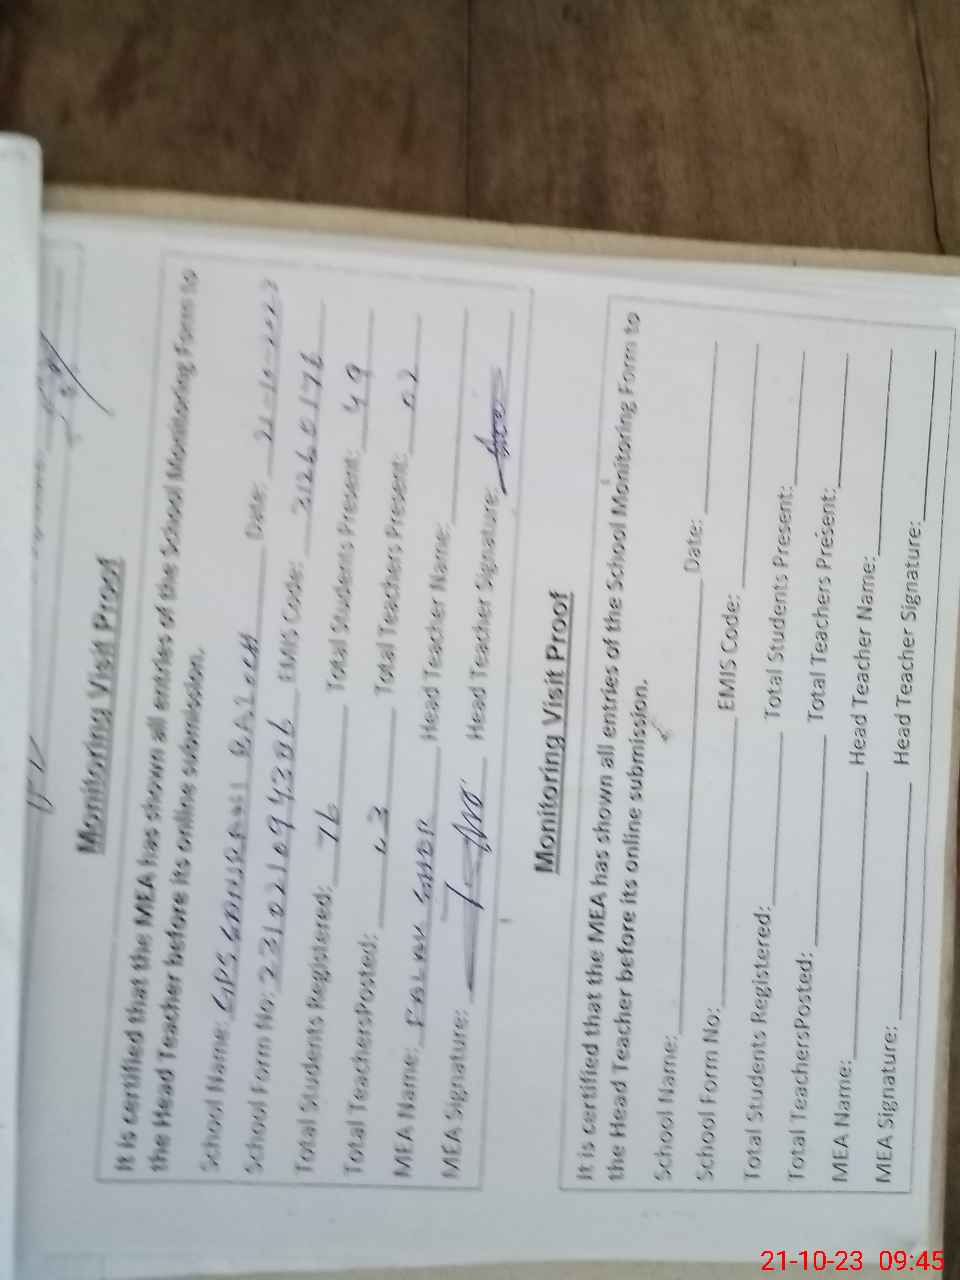 Monitoring Visit Proof
It is certified that the MEA has shown all entries of the School Monitoring Form to
the Head Teacher before its online submission.
School Name: GPS BALOCH Date: 21-10-2023
School Form No: EMIS Code: 31260176
Total Students Registered: 76 Total Students Present: 49
Total TeachersPosted: 03 Total Teachers Present: 02
MEA Name: Head Teacher Name:
MEA Signature: Head Teacher Signature:
Monitoring Visit Proof
It is certified that the MEA has shown all entries of the School Monitoring Form to
the Head Teacher before its online submission.
School Name: Date:
School Form No: EMIS Code:
Total Students Registered: Total Students Present:
Total TeachersPosted: Total Teachers Present:
MEA Name: Head Teacher Name:
MEA Signature: Head Teacher Signature:
21-10-23 09:45